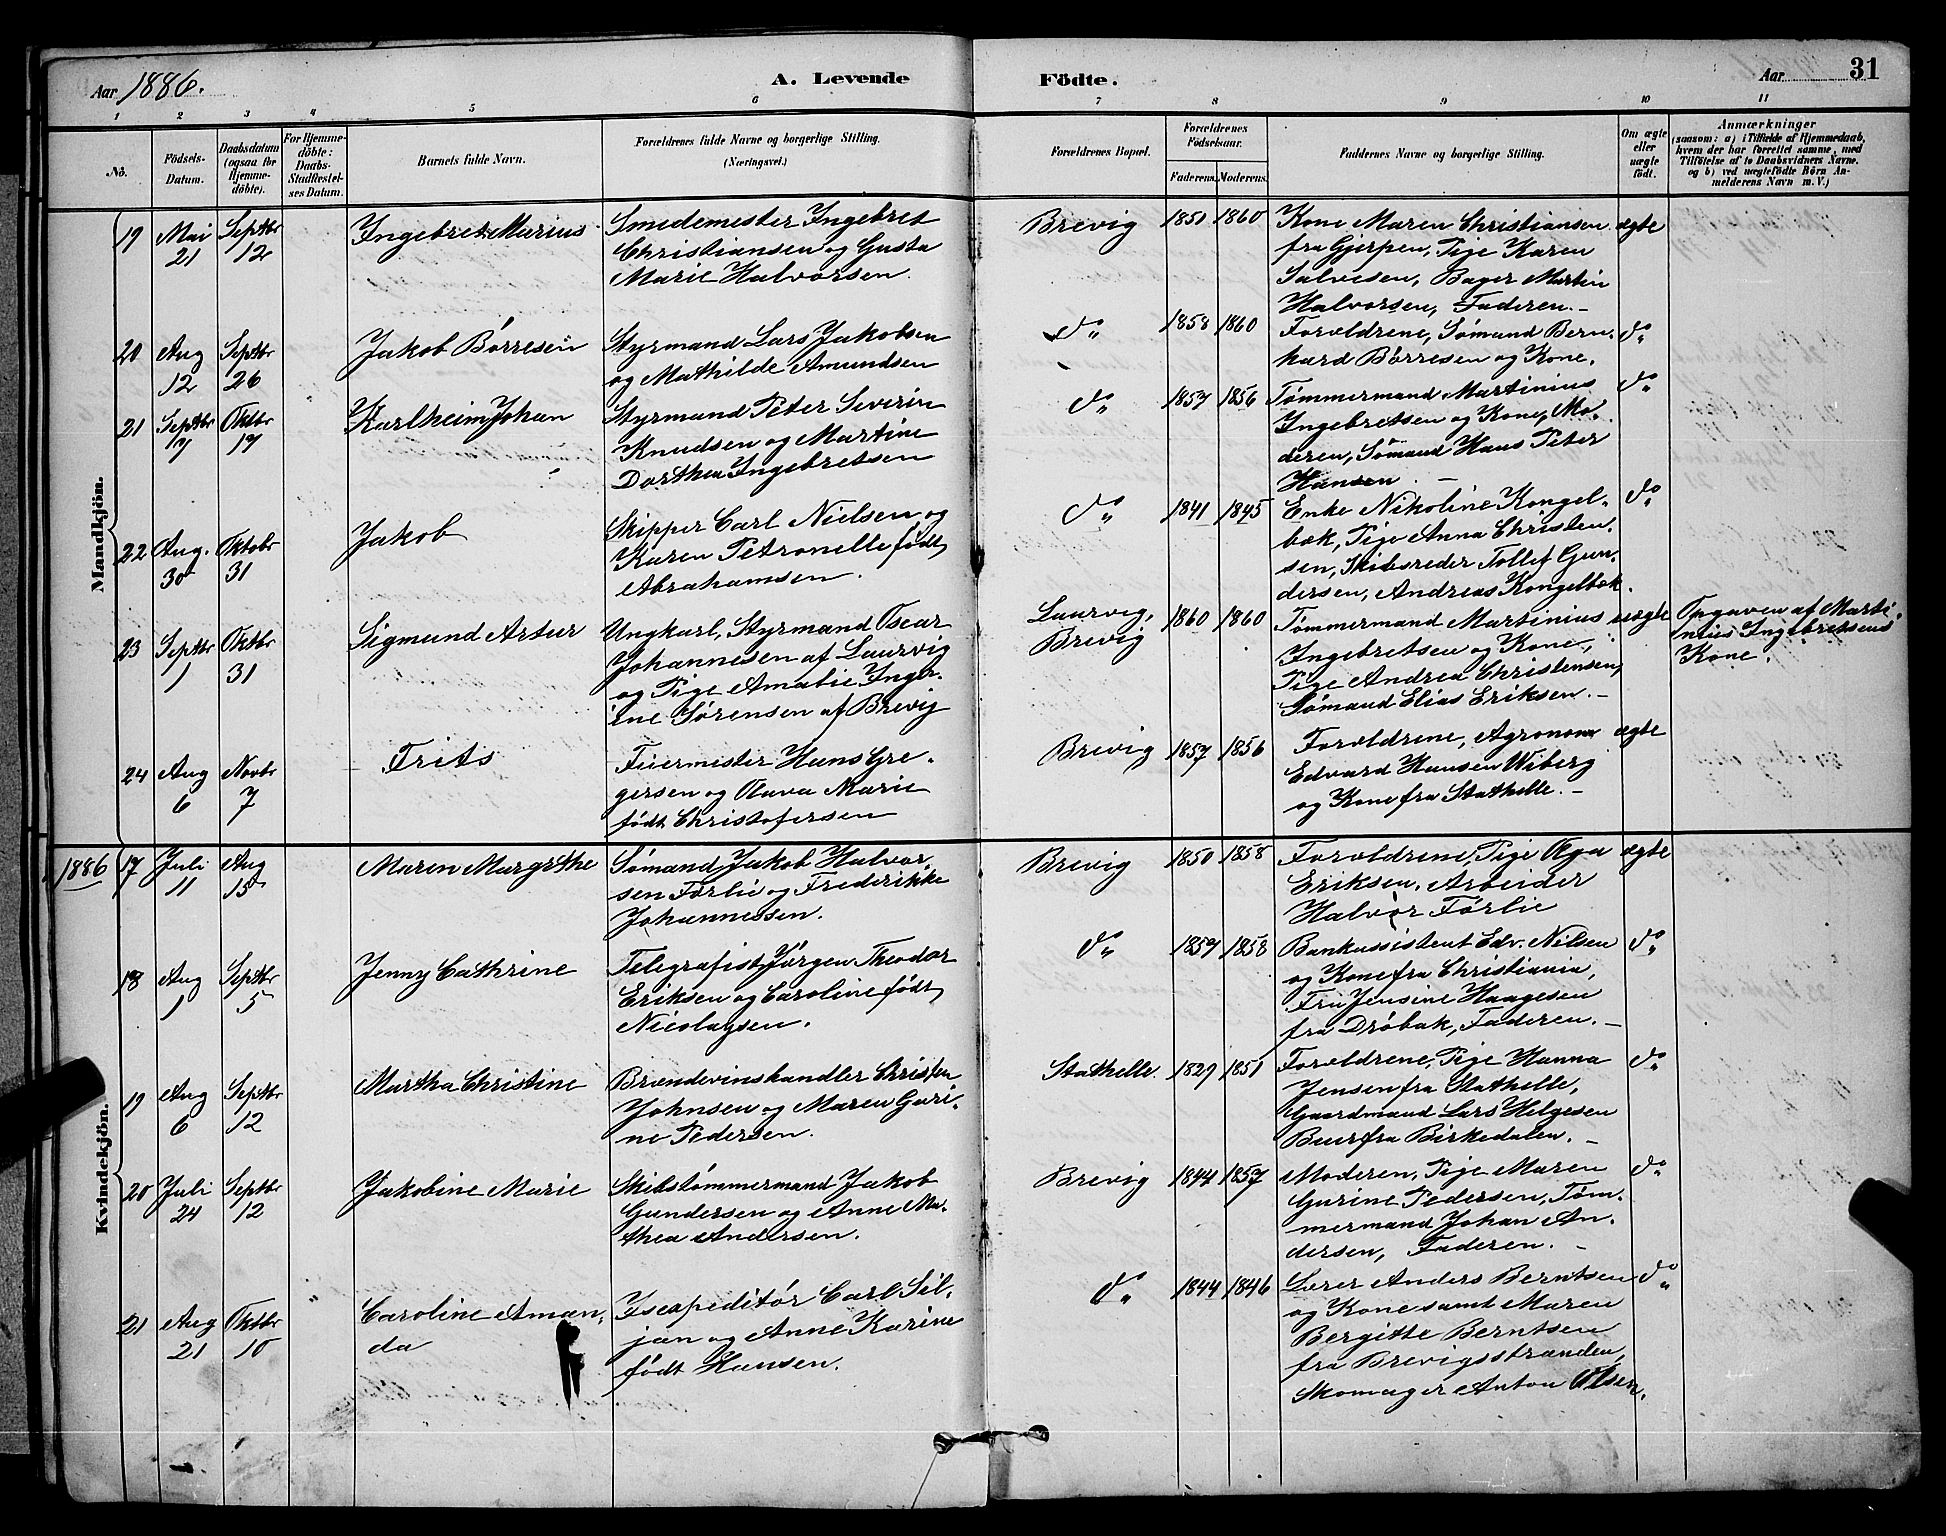 Aar 1886.
A. Levende Födte.
Aar 31
1 2 3 4 5 6 7 8 9 10 11
No.
Födsels-Datum.
Daabsdatum (ogsaa for Hjemme-döbte).
For Hjemme-döbte: Daabs-Stadfæstel-ses Datum.
Barnets fulde Navn.
Forældrenes fulde Navne og borgerlige Stilling. (Næringsvei.)
Forældrenes Bopæl.
Forældrenes Födselsaar.
Faderens. Moderens.
Faddernes Navne og borgerlige Stilling.
Om ægte eller uægte födt.
Anmærkninger
(saasom: a) i Tilfælde af Hjemmedaab,
hvem der har forrettet samme, med
Tilföielse af to Daabsvidners Navne.
og b) ved uægtefödte Börn An-
melderens Navn m. V.)
Mandkjön.
19 Mai 21 Septbr 12 Ingebret Marius
Smedemester Ingebret
Christiansen og Gusta
Marie Halvorsen
Brevig 1851 1860
Kone Maren Christiansen
fra Gjerpen, Pige Karen
Salvesen, Bager Martin
Halvorsen, Faderen.-
ægte
20 Aug 12 Septbr 26 Jakob Börresen
Styrmand Lars Jakobsen
og Mathilde Amundsen
do 1858 1860
Forældrene, Sømand Bern-
hard Börresen og Kone.
do
21 Septbr 17 Oktbr 17 Karlheim Johan
Styrmand Peter Severin
Knudsen og Martine
Dorthea Ingebretsen
do 1857 1856
Tømmermand Martinius
Ingebretsen og Kone, Mo-
deren, Sømand Hans Peter
Hansen. -
do
22 Aug. 30 Oktobr 31 Jakob
Skipper Carl Nielsen og
Karen Petronelle født
Abrahamsen.
do 1841 1845
Enke Nikoline Kongel-
bæk, Pige Anna Christen-
sen, Skibsreder Tollef Gun-
dersen, Andreas Kongelbæk.
do
23 Septbr 1 Oktbr 31 Sigmund Artur
Ungkarl, Styrmand Oscar
Johannesen af Laurvig
og Pige Amalie Inger-
ine Sørensen af Brevig
Laurvig,
Brevig
1860 1860
Tømmermand Martinius
Ingebretsen og Kone,
Pige Andrea Christensen,
Sømand Elias Eriksen.-
uægte
Opgaven af Marti-
nius Ingebretsens
Kone.
24 Aug 6 Novbr 7 Frits
Feiermester Hans Gre-
gersen og Olava Marie
født Christofersen
Brevig 1857 1856
Forældrene, Agronom
Edvard Hansen Wiberg
og Kone fra Stathelle.-
ægte
1886
Kvindekjön.
17 Juli 11 Aug 15 Maren Margrethe
Sømand Jakob Halvor-
sen Førlie og Frederikke
Johannessen.
Brevig 1850 1858
Forældrene, Pige Aga
Eriksen, Arbeider
Halvor Førlie
ægte
18 Aug 1 Septbr 5 Jenny Cathrine
Telegrafist Jørgen Theodor
Eriksen og Caroline født
Nicolaysen.
do 1857 1858
Bankassistent Edv. Nilsen
og Kone fra Christiania,
Fru Jensine Haagesen
fra Drøbak, Faderen.-
do
19 Aug 6 Septbr 12 Martha Christine
Brændevinshandler Christen
Johnsen og Maren Guri-
ne Pedersen.
Stathelle 1829 1851
Forældrene, Pige Hanna
Jensen fra Stathelle,
Gaardmand Lars Helgesen
Buer fra Birkedalen. -
do
20 Juli 24 Septbr 12 Jakobine Marie
Skibstømmermand Jakob
Gundersen og Anne Ma-
thea Andersen.
Brevig 1844 1857
Moderen, Pige Maren
Gurine Pedersen, Tøm-
mermand Johan An-
dersen, Faderen. -
do
21 Aug 21 Oktbr 10 Caroline Aman-
da
Isexpeditór Carl Sil-
jan og Anne Karine
født Hansen.
do 1844 1846
Lærer Anders Berntsen
og Kone samt Maren
Bergitte Berntsen
fra Brevigsstranden,
Skomager Anton Olsen.
do